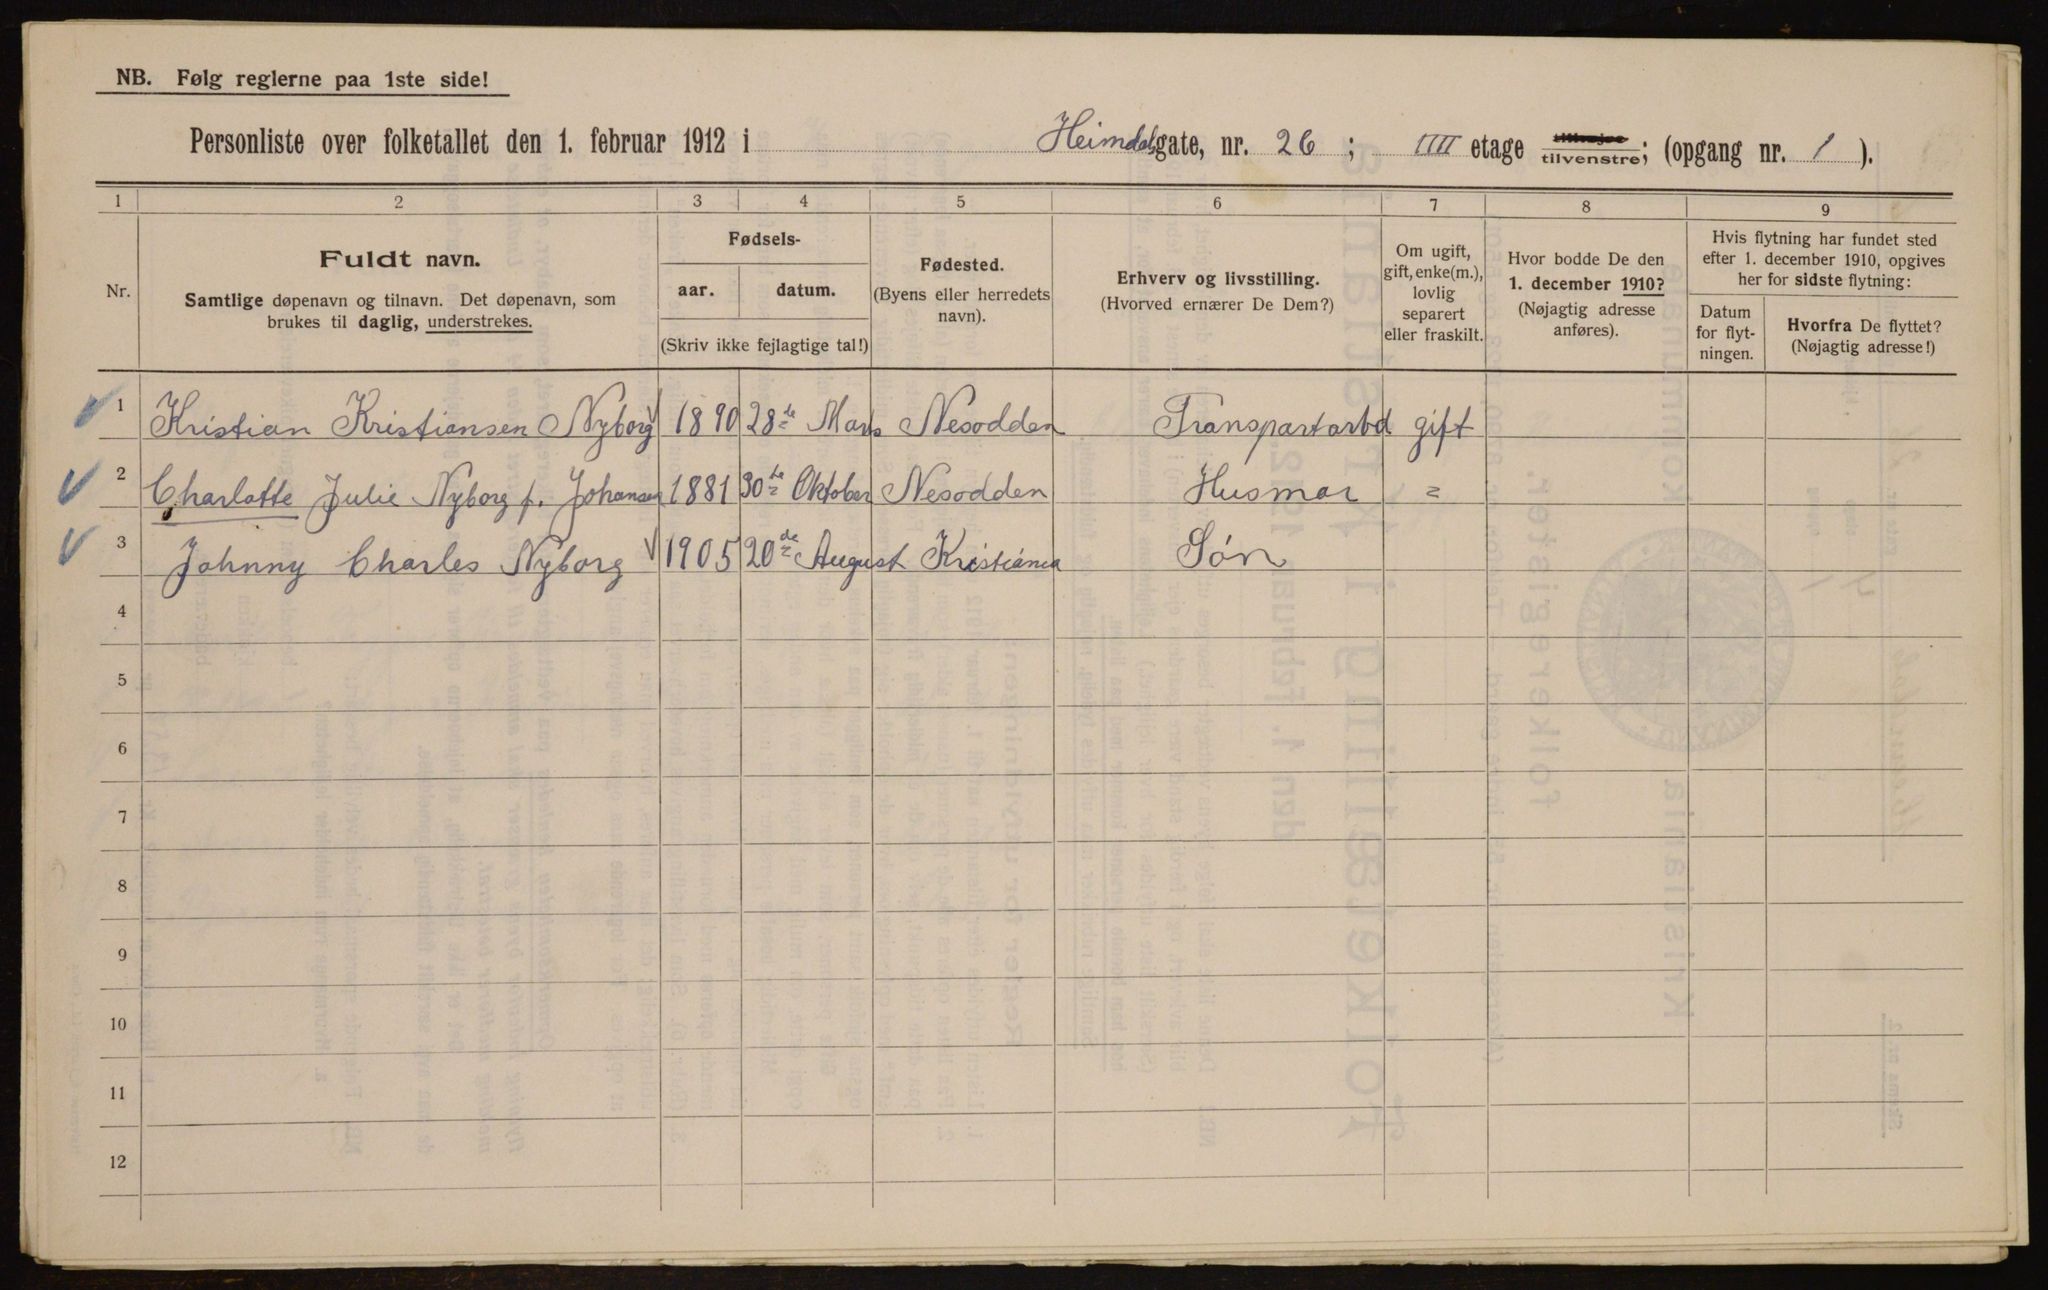 NB. Følg reglerne paa 1ste side!
Personliste over folketallet den 1. februar 1912 i Heimdalsgate, nr. 26; IIII etage tilhøire tilvenstre; (opgang nr. 1).
1 2 3 4 5 6 7 8 9
Nr.
Fuldt navn.
Samtlige døpenavn og tilnavn. Det døpenavn, som
brukes til daglig, understrekes.
Fødsels-
aar. datum.
(Skriv ikke fejlagtige tal!)
Fødested.
(Byens eller herredets
navn).
Erhverv og livsstilling.
(Hvorved ernærer De Dem?)
Om ugift,
gift, enke(m.),
lovlig
separert
eller fraskilt.
Hvor bodde De den
1. december 1910?
(Nøjagtig adresse
anføres).
Hvis flytning har fundet sted
efter 1. december 1910, opgives
her for sidste flytning:
Datum
for flyt-
ningen.
Hvorfra De flyttet?
(Nøjagtig adresse!)
1 Kristian Kristiansen Nyborg 1890 28de Mars Nesodden Transpartarbd gift
2 Charlotte Julie Nyborg f. Johansen 1881 30te Oktober Nesodden Husmor "
3 Johnny Charles Nyborg 1905 20de August Kristiania Søn
4
5
6
7
8
9
10
11
12